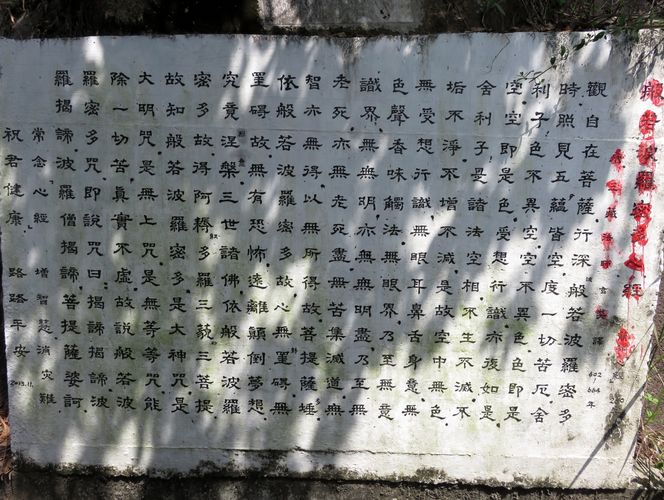 般若波羅密多心經
唐三藏法師玄奘譯
602
664年
觀自在菩薩行深般若波羅密多
時照見五蘊皆空度一切苦厄舍
利子色不異空空不異色色即是
空空即是色受想行識亦復如是
舍利子是諸法空相不生不滅不
垢不淨不增不減是故空中無色
無受想行識無眼耳鼻舌身意無
色聲香味觸法無眼界乃至無意
識界無無明亦無無明盡乃至無
老死亦無老死盡無苦集滅道無
智亦無得以無所得故菩提薩埵
依般若波羅密多故心無罣礙無
罣礙故無有恐怖遠離顛倒夢想
究竟涅槃三世諸佛依般若波羅
密多故得阿耨多羅三藐三菩提
故知般若波羅密多是大神咒是
大明咒是無上咒是無等等咒能
除一切苦真實不虛故說般若波
羅密多咒即說咒曰揭諦揭諦波
羅揭諦波羅僧揭諦菩提薩婆訶
常念心經 增智慧消災難
祝君健康 路路平安 2013.11.